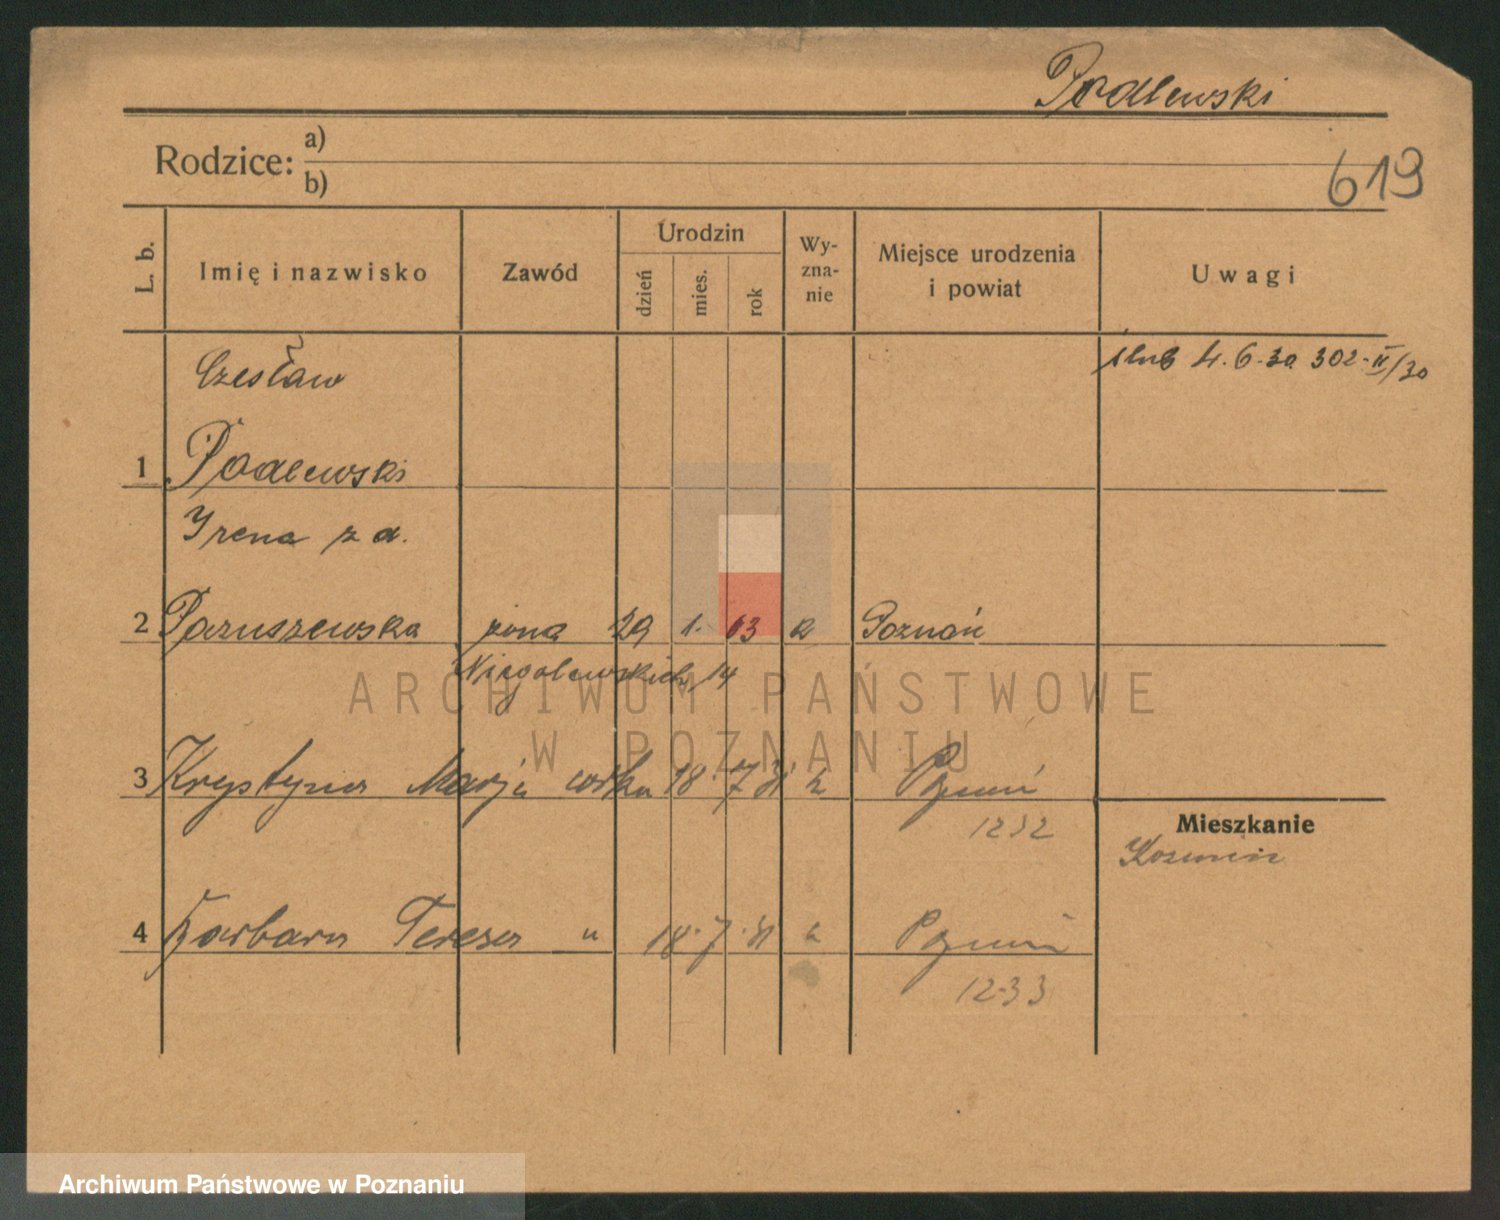 Podlewski
Rodzice: a)
b)
619
L. b.
Imię i nazwisko
Zawód
Urodzin
dzień
mies.
rok
Wy-
zna-
nie
Miejsce urodzenia
i powiat
Uwagi
Czesław
ślub 4.6.30 302-II/30
1 Podlewski
Irena z d.
2 Paruszewska żona 29 1. 03 k Poznań
Niegolewskich 14
3 Krystyna Marja córka 18 7 31 k Poznań
1232
Mieszkanie
4 Barbara Teresa " 18. 7. 31 k Poznań
1233
ARCHIWUM PAŃSTWOWE
W POZNANIU
Archiwum Państwowe w Poznaniu